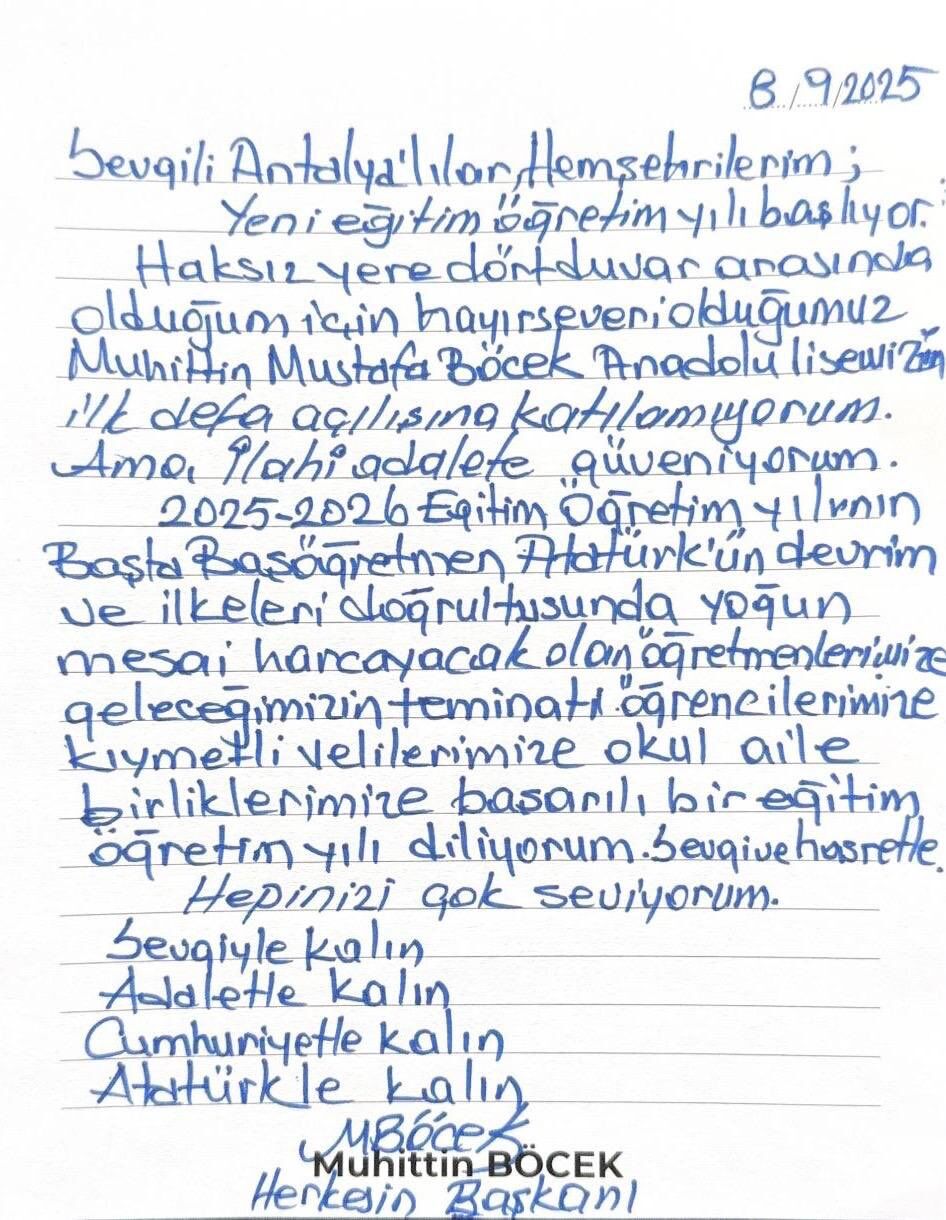 8/9/2025
Sevgili Antalya'lılar, Hemşehrilerim;
Yeni eğitim öğretim yılı başlıyor.
Haksız yere dört duvar arasında
olduğum için hayırseveri olduğumuz
Muhittin Mustafa Böcek Anadolu lisemizin
ilk defa açılışına katılamıyorum.
Ama, İlahi adalete güveniyorum.
2025-2026 Eğitim Öğretim yılının
Başta Başöğretmen Atatürk'ün devrim
ve ilkeleri doğrultusunda yoğun
mesai harcayacak olan öğretmenlerimize
geleceğimizin teminatı öğrencilerimize
kıymetli velilerimize okul aile
birliklerimize başarılı bir eğitim
öğretim yılı diliyorum. Sevgi ve hasretle.
Hepinizi çok seviyorum.
Sevgiyle kalın
Adaletle kalın
Cumhuriyetle kalın
Atatürkle kalın
MBöcek
Muhittin BÖCEK
Herkesin Başkanı